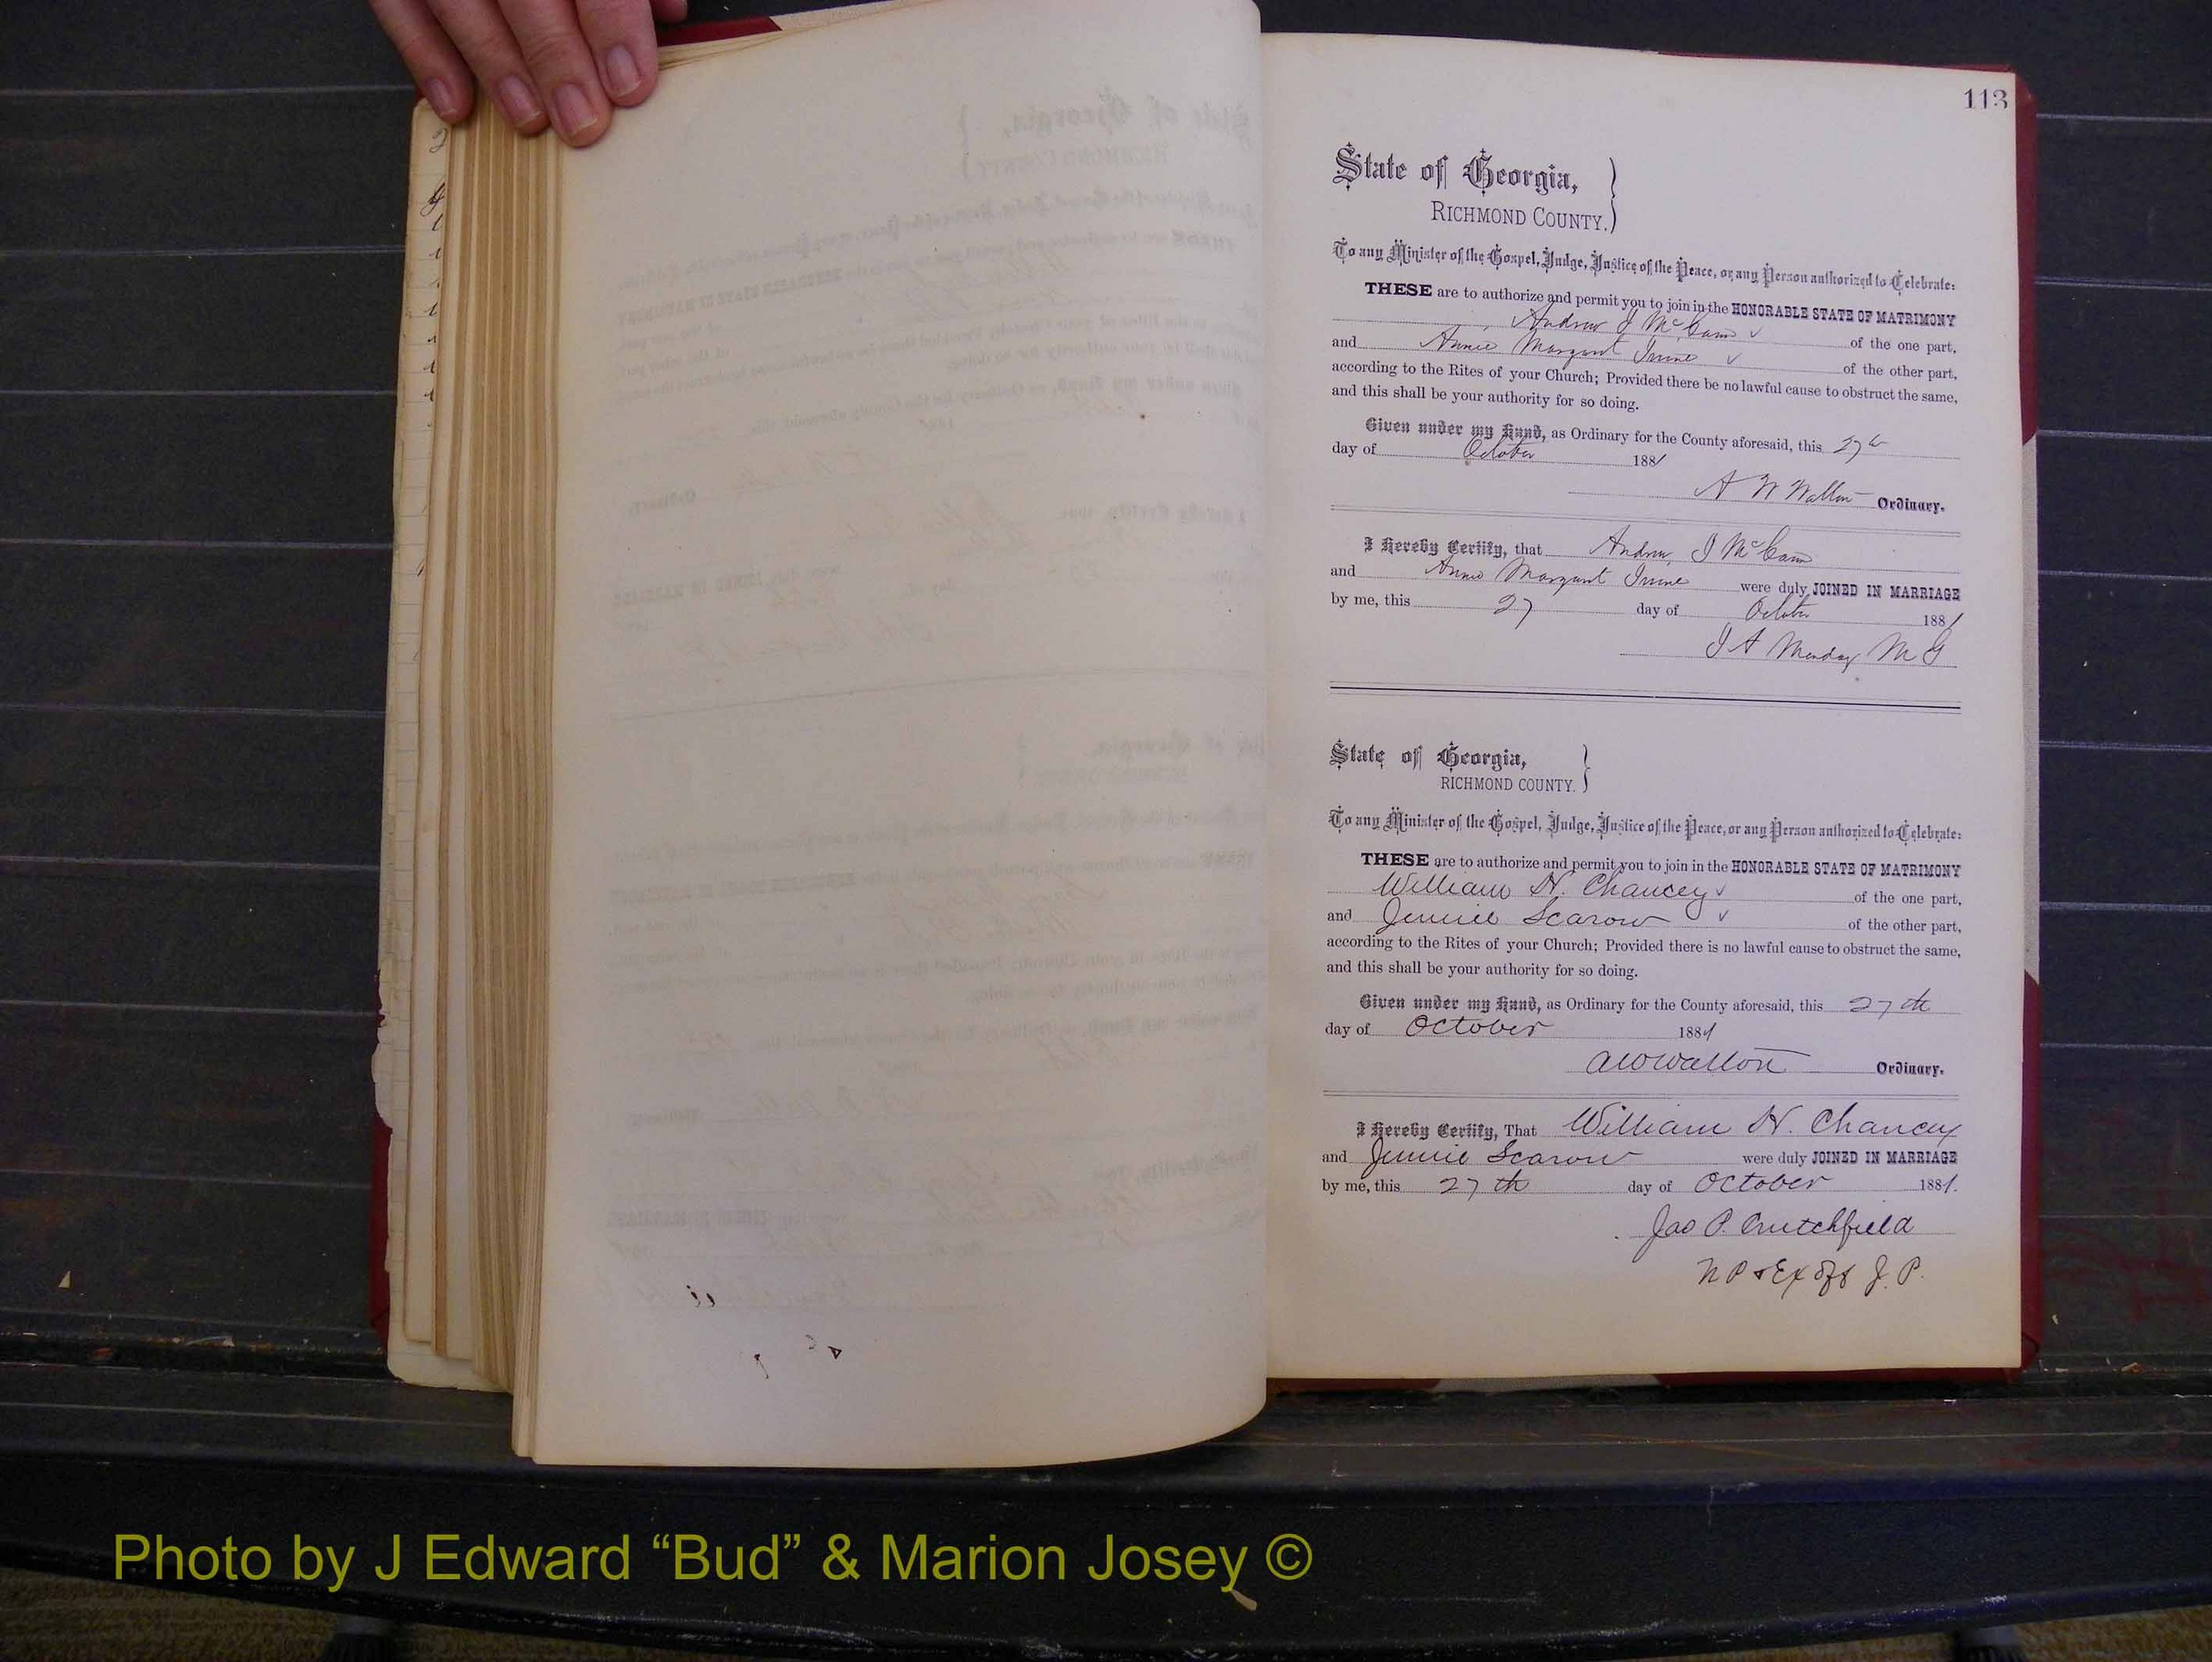 113
State of Georgia,
RICHMOND COUNTY.
To any Minister of the Gospel, Judge, Justice of the Peace, or any Person authorized to Celebrate:
THESE are to authorize and permit you to join in the HONORABLE STATE OF MATRIMONY
Andrew J McCann of the one part,
and Annie Margaret Irvine of the other part,
according to the Rites of your Church; Provided there be no lawful cause to obstruct the same,
and this shall be your authority for so doing.
Given under my Hand, as Ordinary for the County aforesaid, this 27th
day of October 1881
A W Walton Ordinary.
I Hereby Certify, that Andrew J McCann
and Annie Margaret Irvine were duly JOINED IN MARRIAGE
by me, this 27 day of October 1881
J A Munday M G
State of Georgia,
RICHMOND COUNTY.
To any Minister of the Gospel, Judge, Justice of the Peace, or any Person authorized to Celebrate:
THESE are to authorize and permit you to join in the HONORABLE STATE OF MATRIMONY
William H. Chancey of the one part,
and Jennie Scarow of the other part,
according to the Rites of your Church; Provided there is no lawful cause to obstruct the same,
and this shall be your authority for so doing.
Given under my Hand, as Ordinary for the County aforesaid, this 27th
day of October 1881
A W Walton Ordinary.
I Hereby Certify, That William H. Chancey
and Jennie Scarow were duly JOINED IN MARRIAGE
by me, this 27th day of October 1881.
Jas P. Crutchfield
N P & Ex off J. P.
Photo by J Edward “Bud” & Marion Josey ©